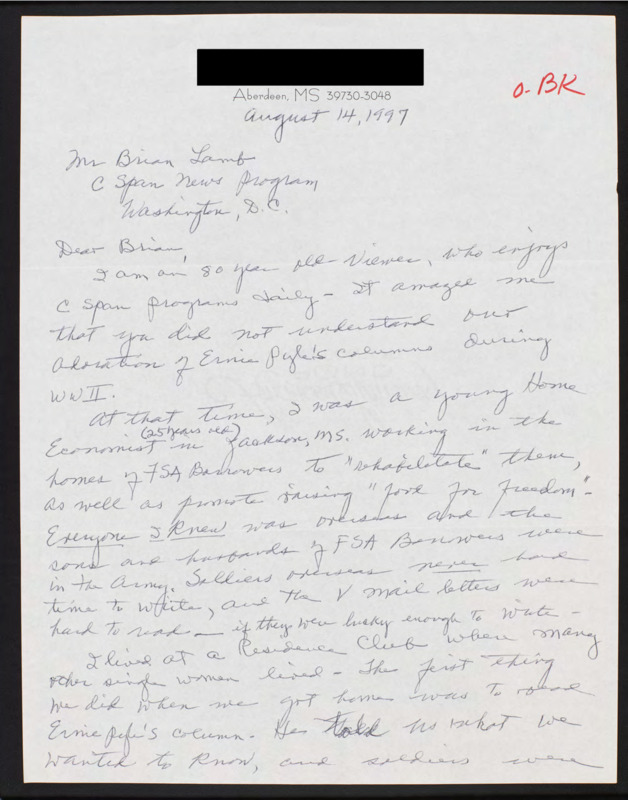 Aberdeen, MS 39730-3048
O-BK
August 14, 1997
Mr Brian Lamb
C Span News Program
Washington, D.C.
Dear Brian,
I am an 80 year old - viewer, who enjoys
C Span programs daily - It amazes me
that you did not understand our
adoration of Ernie Pyle's columns during
WW II.
At that time, I was a young Home
(25 years old)
Economist in Jackson, MS. working in the
homes of FSA Borrowers to "rehabilitate" them,
as well as promote raising "food for freedom" -
Everyone I Knew was overseas and the
sons and husbands of FSA Borrowers were
in the Army. Soldiers overseas never had
time to write, and the V mail letters were
hard to read - if they were lucky enough to write -
I lived at a Residence Club where many
other single women lived - The first thing
we did when we got home was to read
Ernie Pyle's column. He told us what we
wanted to know, and soldiers were